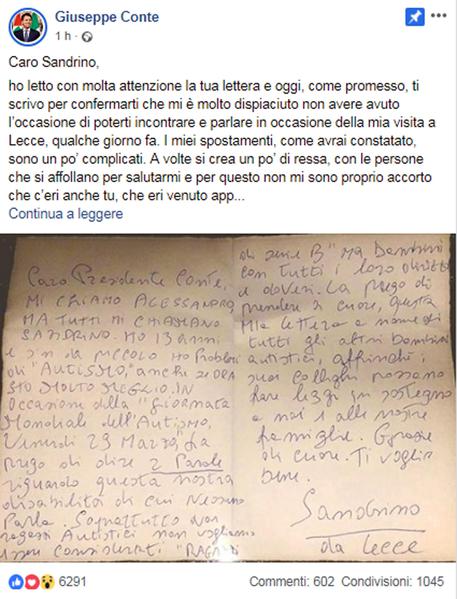 Giuseppe Conte
1 h ·
Caro Sandrino,
ho letto con molta attenzione la tua lettera e oggi, come promesso, ti
scrivo per confermarti che mi è molto dispiaciuto non avere avuto
l'occasione di poterti incontrare e parlare in occasione della mia visita a
Lecce, qualche giorno fa. I miei spostamenti, come avrai constatato,
sono un po' complicati. A volte si crea un po' di ressa, con le persone
che si affollano per salutarmi e per questo non mi sono proprio accorto
che c'eri anche tu, che eri venuto app...
Continua a leggere
Caro Presidente Conte,
MI CHIAMO ALESSANDRO,
MA TUTTI MI CHIAMANO
SANDRINO. HO 13 anni
e sin da piccolo ho problemi
di "AUTISMO," anche se ORA
STO MOLTO MEGLIO. IN
Occasione della "Giornata
Mondiale dell'Autismo,
Venerdì 29 Marzo, La
prego di dire 2 Parole
riguardo questa nostra
disabilità di cui Nessuno
Parla. Soprattutto Noi
ragazzi Autistici non vogliamo
essere considerati "RAGAZZI
di serie B" ma Bambini
con tutti i loro diritti
e doveri. La prego di
prendere a cuore, questa
mia lettera a nome di
tutti gli altri bambini
autistici, affinché i
suoi colleghi possano
fare leggi in sostegno
a noi e alle nostre
famiglie. Grazie
di cuore. Ti voglio
bene.
Sandrino
da Lecce
6291
Commenti: 602 Condivisioni: 1045